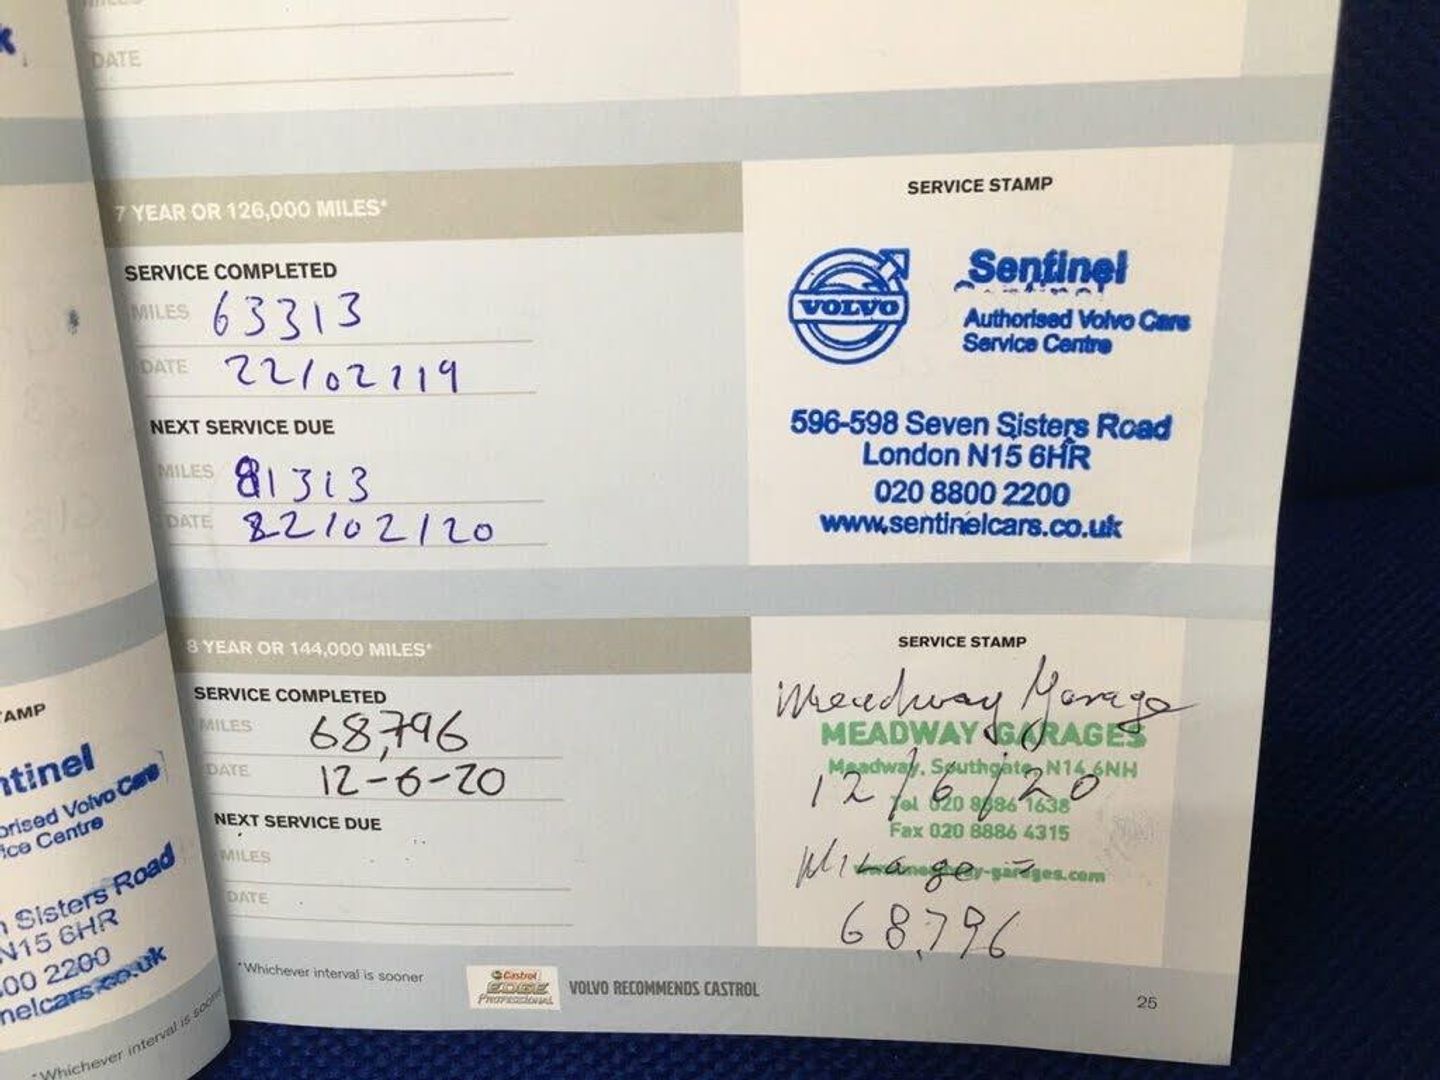 MILES
DATE
7 YEAR OR 126,000 MILES*
SERVICE COMPLETED
MILES 63313
DATE 22/02/19
NEXT SERVICE DUE
MILES 81313
DATE 22/02/20
SERVICE STAMP
VOLVO
Sentinel
Authorised Volvo Cars
Service Centre
596-598 Seven Sisters Road
London N15 6HR
020 8800 2200
www.sentinelcars.co.uk
8 YEAR OR 144,000 MILES*
SERVICE COMPLETED
MILES 68,796
DATE 12-6-20
NEXT SERVICE DUE
MILES
DATE
SERVICE STAMP
Meadway Garage
MEADWAY GARAGES
Meadway, Southgate, N14 6NH
12/6/20
Tel 020 8886 1638
Fax 020 8886 4315
Milage =
-garages.com
68,796
*Whichever interval is sooner
Castrol
EDGE
Professional
VOLVO RECOMMENDS CASTROL
25
AMP
ntinel
orised Volvo Cars
ice Centre
Sisters Road
N15 6HR
00 2200
nelcars.co.uk
*Whichever interval is sooner